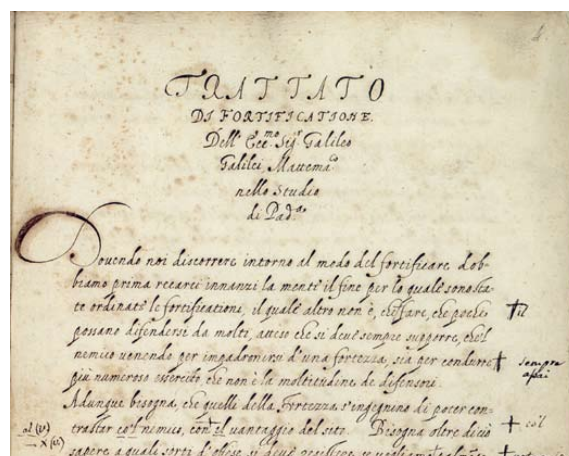 TRATTATO
DI FORTIFICATIONE.
Dell' Ecc.mo Sig.r Galileo
Galilei Mattema.co
nello Studio
di Pad.a
Douendo noi discorrere intorno al modo del fortificare dob-
biamo prima recarci innanzi la mente il fine per lo quale sono sta-
te ordinate le fortificationi, il quale altro non è, che fare, che pochi
possano difendersi da molti, atteso che si deue sempre supporre, che'l
nemico uenendo per impadronirsi d'una fortezza, sia per condurre
più numeroso essercito, che non è la moltitudine de difensori.
Adunque bisogna, che quelli della Fortezza s'ingegnino di poter con-
trastar co'l nimico, con el uantaggio del sito. Bisogna oltre di ciò
sapere a quali sorti d'offese si deue resistere
il
sempre
assai
co'l